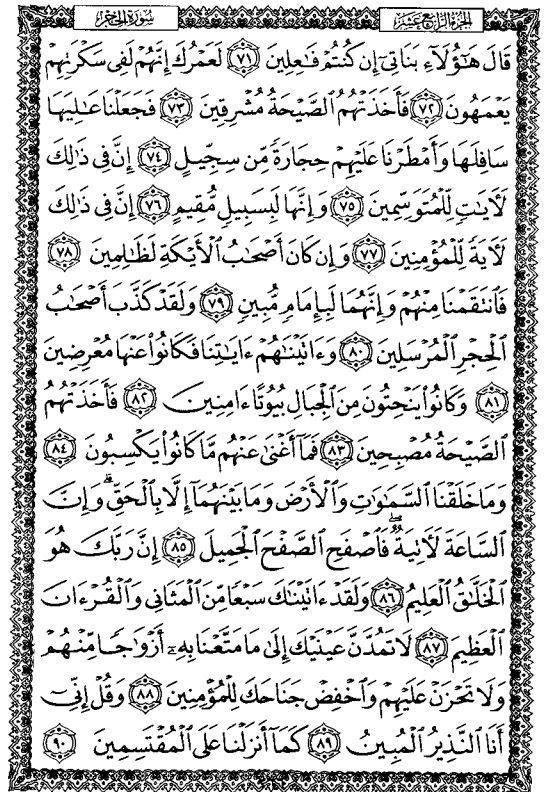 سُورَةُ الحِجْرِ الجُزْءُ الرَّابِعَ عَشَرَ
قَالَ هَٰٓؤُلَآءِ بَنَاتِىٓ إِن كُنتُمْ فَٰعِلِينَ ٧١ لَعَمْرُكَ إِنَّهُمْ لَفِى سَكْرَتِهِمْ
يَعْمَهُونَ ٧٢ فَأَخَذَتْهُمُ ٱلصَّيْحَةُ مُشْرِقِينَ ٧٣ فَجَعَلْنَا عَٰلِيَهَا
سَافِلَهَا وَأَمْطَرْنَا عَلَيْهِمْ حِجَارَةً مِّن سِجِّيلٍ ٧٤ إِنَّ فِى ذَٰلِكَ
لَأٓيَٰتٍ لِّلْمُتَوَسِّمِينَ ٧٥ وَإِنَّهَا لَبِسَبِيلٍ مُّقِيمٍ ٧٦ إِنَّ فِى ذَٰلِكَ
لَأٓيَةً لِّلْمُؤْمِنِينَ ٧٧ وَإِن كَانَ أَصْحَٰبُ ٱلْأَيْكَةِ لَظَٰلِمِينَ ٧٨
فَٱنتَقَمْنَا مِنْهُمْ وَإِنَّهُمَا لَبِإِمَامٍ مُّبِينٍ ٧٩ وَلَقَدْ كَذَّبَ أَصْحَٰبُ
ٱلْحِجْرِ ٱلْمُرْسَلِينَ ٨٠ وَءَاتَيْنَٰهُمْ ءَايَٰتِنَا فَكَانُوا۟ عَنْهَا مُعْرِضِينَ
٨١ وَكَانُوا۟ يَنْحِتُونَ مِنَ ٱلْجِبَالِ بُيُوتًا ءَامِنِينَ ٨٢ فَأَخَذَتْهُمُ
ٱلصَّيْحَةُ مُصْبِحِينَ ٨٣ فَمَآ أَغْنَىٰ عَنْهُم مَّا كَانُوا۟ يَكْسِبُونَ ٨٤
وَمَا خَلَقْنَا ٱلسَّمَٰوَٰتِ وَٱلْأَرْضَ وَمَا بَيْنَهُمَآ إِلَّا بِٱلْحَقِّ ۗ وَإِنَّ
ٱلسَّاعَةَ لَأٓتِيَةٌ ۖ فَٱصْفَحِ ٱلصَّفْحَ ٱلْجَمِيلَ ٨٥ إِنَّ رَبَّكَ هُوَ
ٱلْخَلَّٰقُ ٱلْعَلِيمُ ٨٦ وَلَقَدْ ءَاتَيْنَٰكَ سَبْعًا مِّنَ ٱلْمَثَانِى وَٱلْقُرْءَانَ
ٱلْعَظِيمَ ٨٧ لَا تَمُدَّنَّ عَيْنَيْكَ إِلَىٰ مَا مَتَّعْنَا بِهِۦٓ أَزْوَٰجًا مِّنْهُمْ
وَلَا تَحْزَنْ عَلَيْهِمْ وَٱخْفِضْ جَنَاحَكَ لِلْمُؤْمِنِينَ ٨٨ وَقُلْ إِنِّىٓ
أَنَا ٱلنَّذِيرُ ٱلْمُبِينُ ٨٩ كَمَآ أَنزَلْنَا عَلَى ٱلْمُقْتَسِمِينَ ٩٠